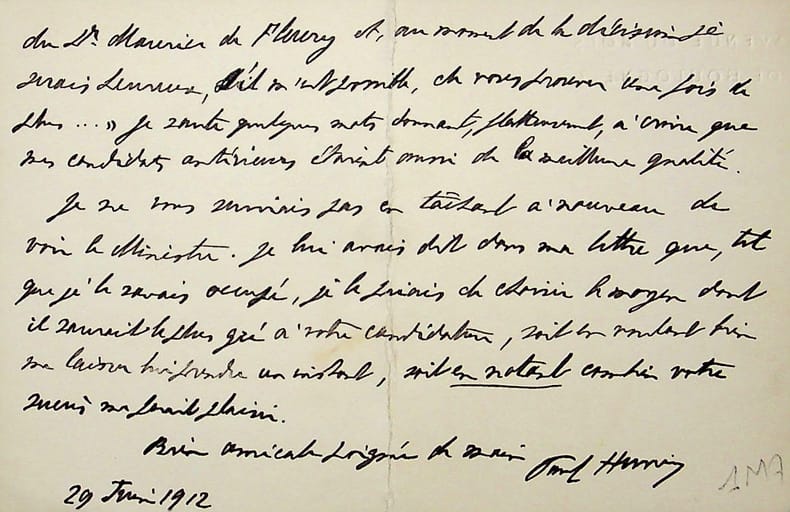 du Dr. Maurice de Fleury et, au moment de la décision je
serais heureux, s'il m'est possible, de vous prouver une fois de
plus ...» Je saute quelques mots donnant, flatteusement, à croire que
mes candidats antérieurs étaient aussi de la meilleure qualité.
Je ne vous servirais pas en tâchant à nouveau de
voir le Ministre. Je lui avais dit dans ma lettre que,
que je le savais occupé, je le priais de choisir le moyen dont
il saurait le plus gré à votre candidature, soit en voulant bien
me laisser lui prendre un instant, soit en notant combien votre
succès me ferait plaisir.
Bien amicale poignée de main Paul Hervieu
29 Juin 1912